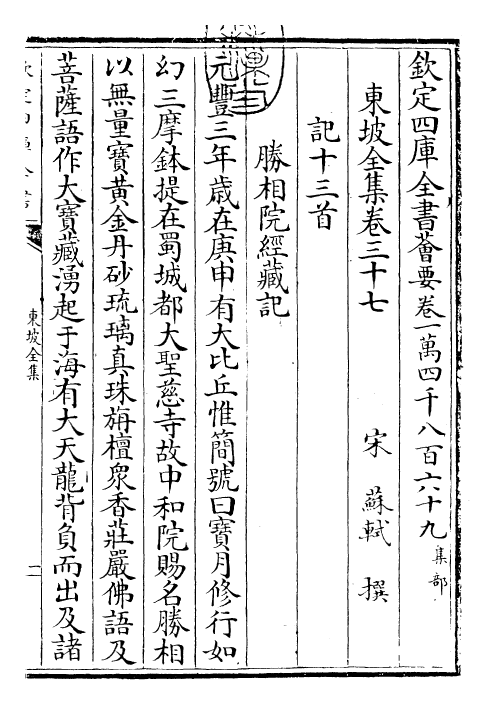 欽定四庫全書薈要卷一萬四千八百六十九集部
東坡全集卷三十七
宋　蘇軾　撰
記十三首
勝相院經藏記
元豐三年歲在庚申有大比丘惟簡號曰寶月修行如
幻三摩鉢提在蜀城都大聖慈寺故中和院賜名勝相
以無量寶黃金丹砂琉璃真珠旃檀衆香莊嚴佛語及
菩薩語作大寶藏湧起于海有大天龍背負而出及諸
東坡全集